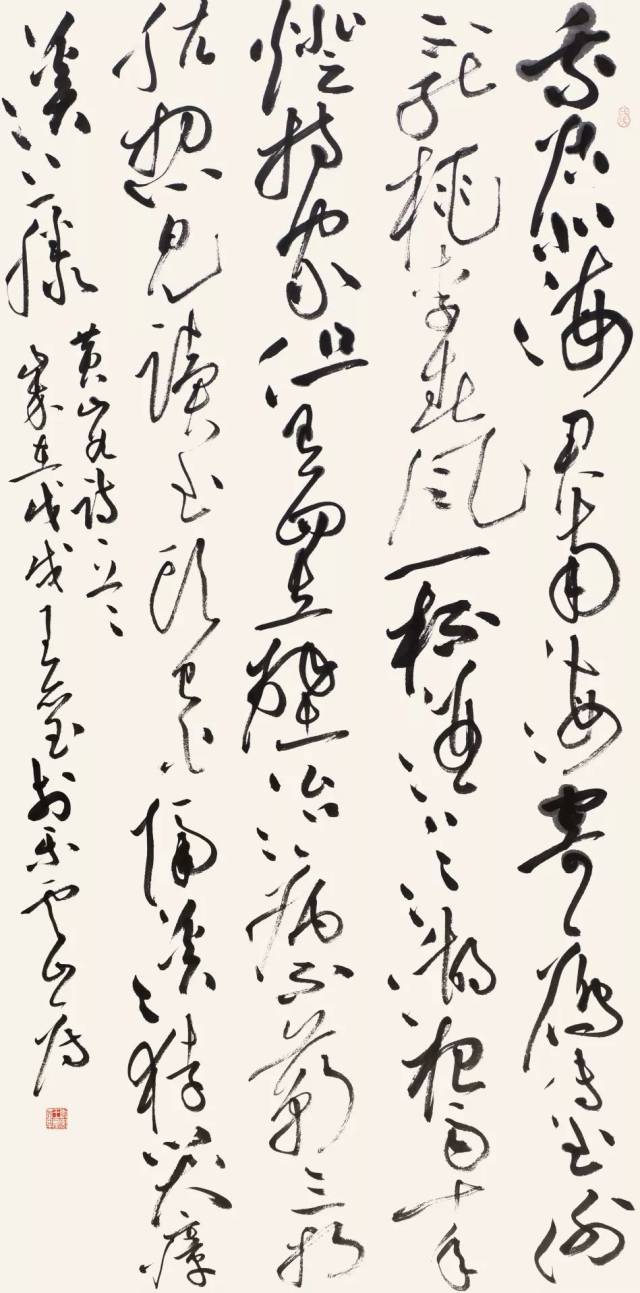 我居北海君南海寄雁傳書謝
不能桃李春風一杯酒江湖夜雨十年
燈持家但有四立壁治病不蘄三折
肱想見讀書頭已白隔溪猿哭瘴
溪藤
黃山谷詩一首
歲在戊戌王於雲山房